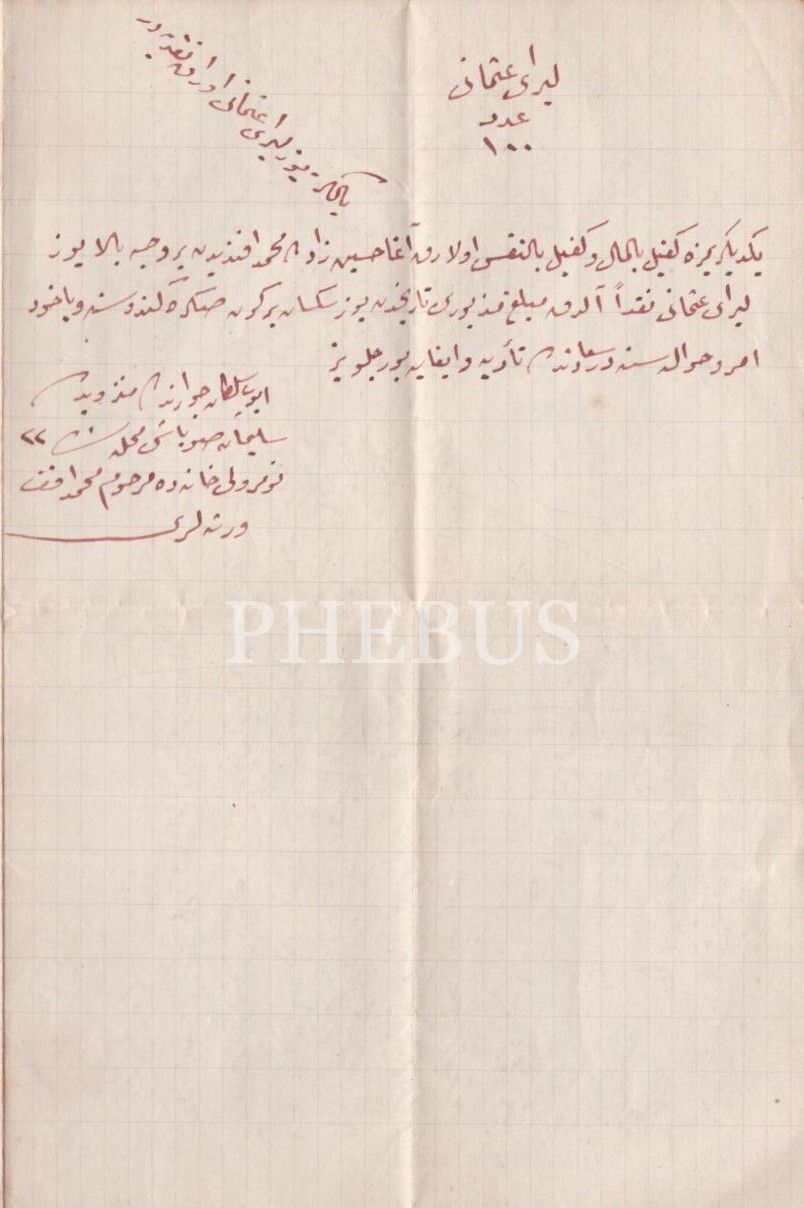 لیرای عثمانی
عدد
١٠٠
یالکز یوز لیرای عثمانی اوراق نقدیه در
یکدیکریمزه کفیل بالمال وکفیل بالنفس اولارق آغا حسین زاده محمد افندیدن بر وجه بالا یوز
لیرای عثمانی نقداً آلدق مبلغ مذبوری تاریخدن یوز سکسان بر کون صکره کندوسنه ویاخود
امر وحواله سنه درسعادتده تأدیه وایفایه بورجلویز
ایوب سلطان جوارنده
سلیمان صوباشی محله سنده ٢٢
نومرولی خانه ده مرحوم محمد افندی
ورثه لری
PHEBUS